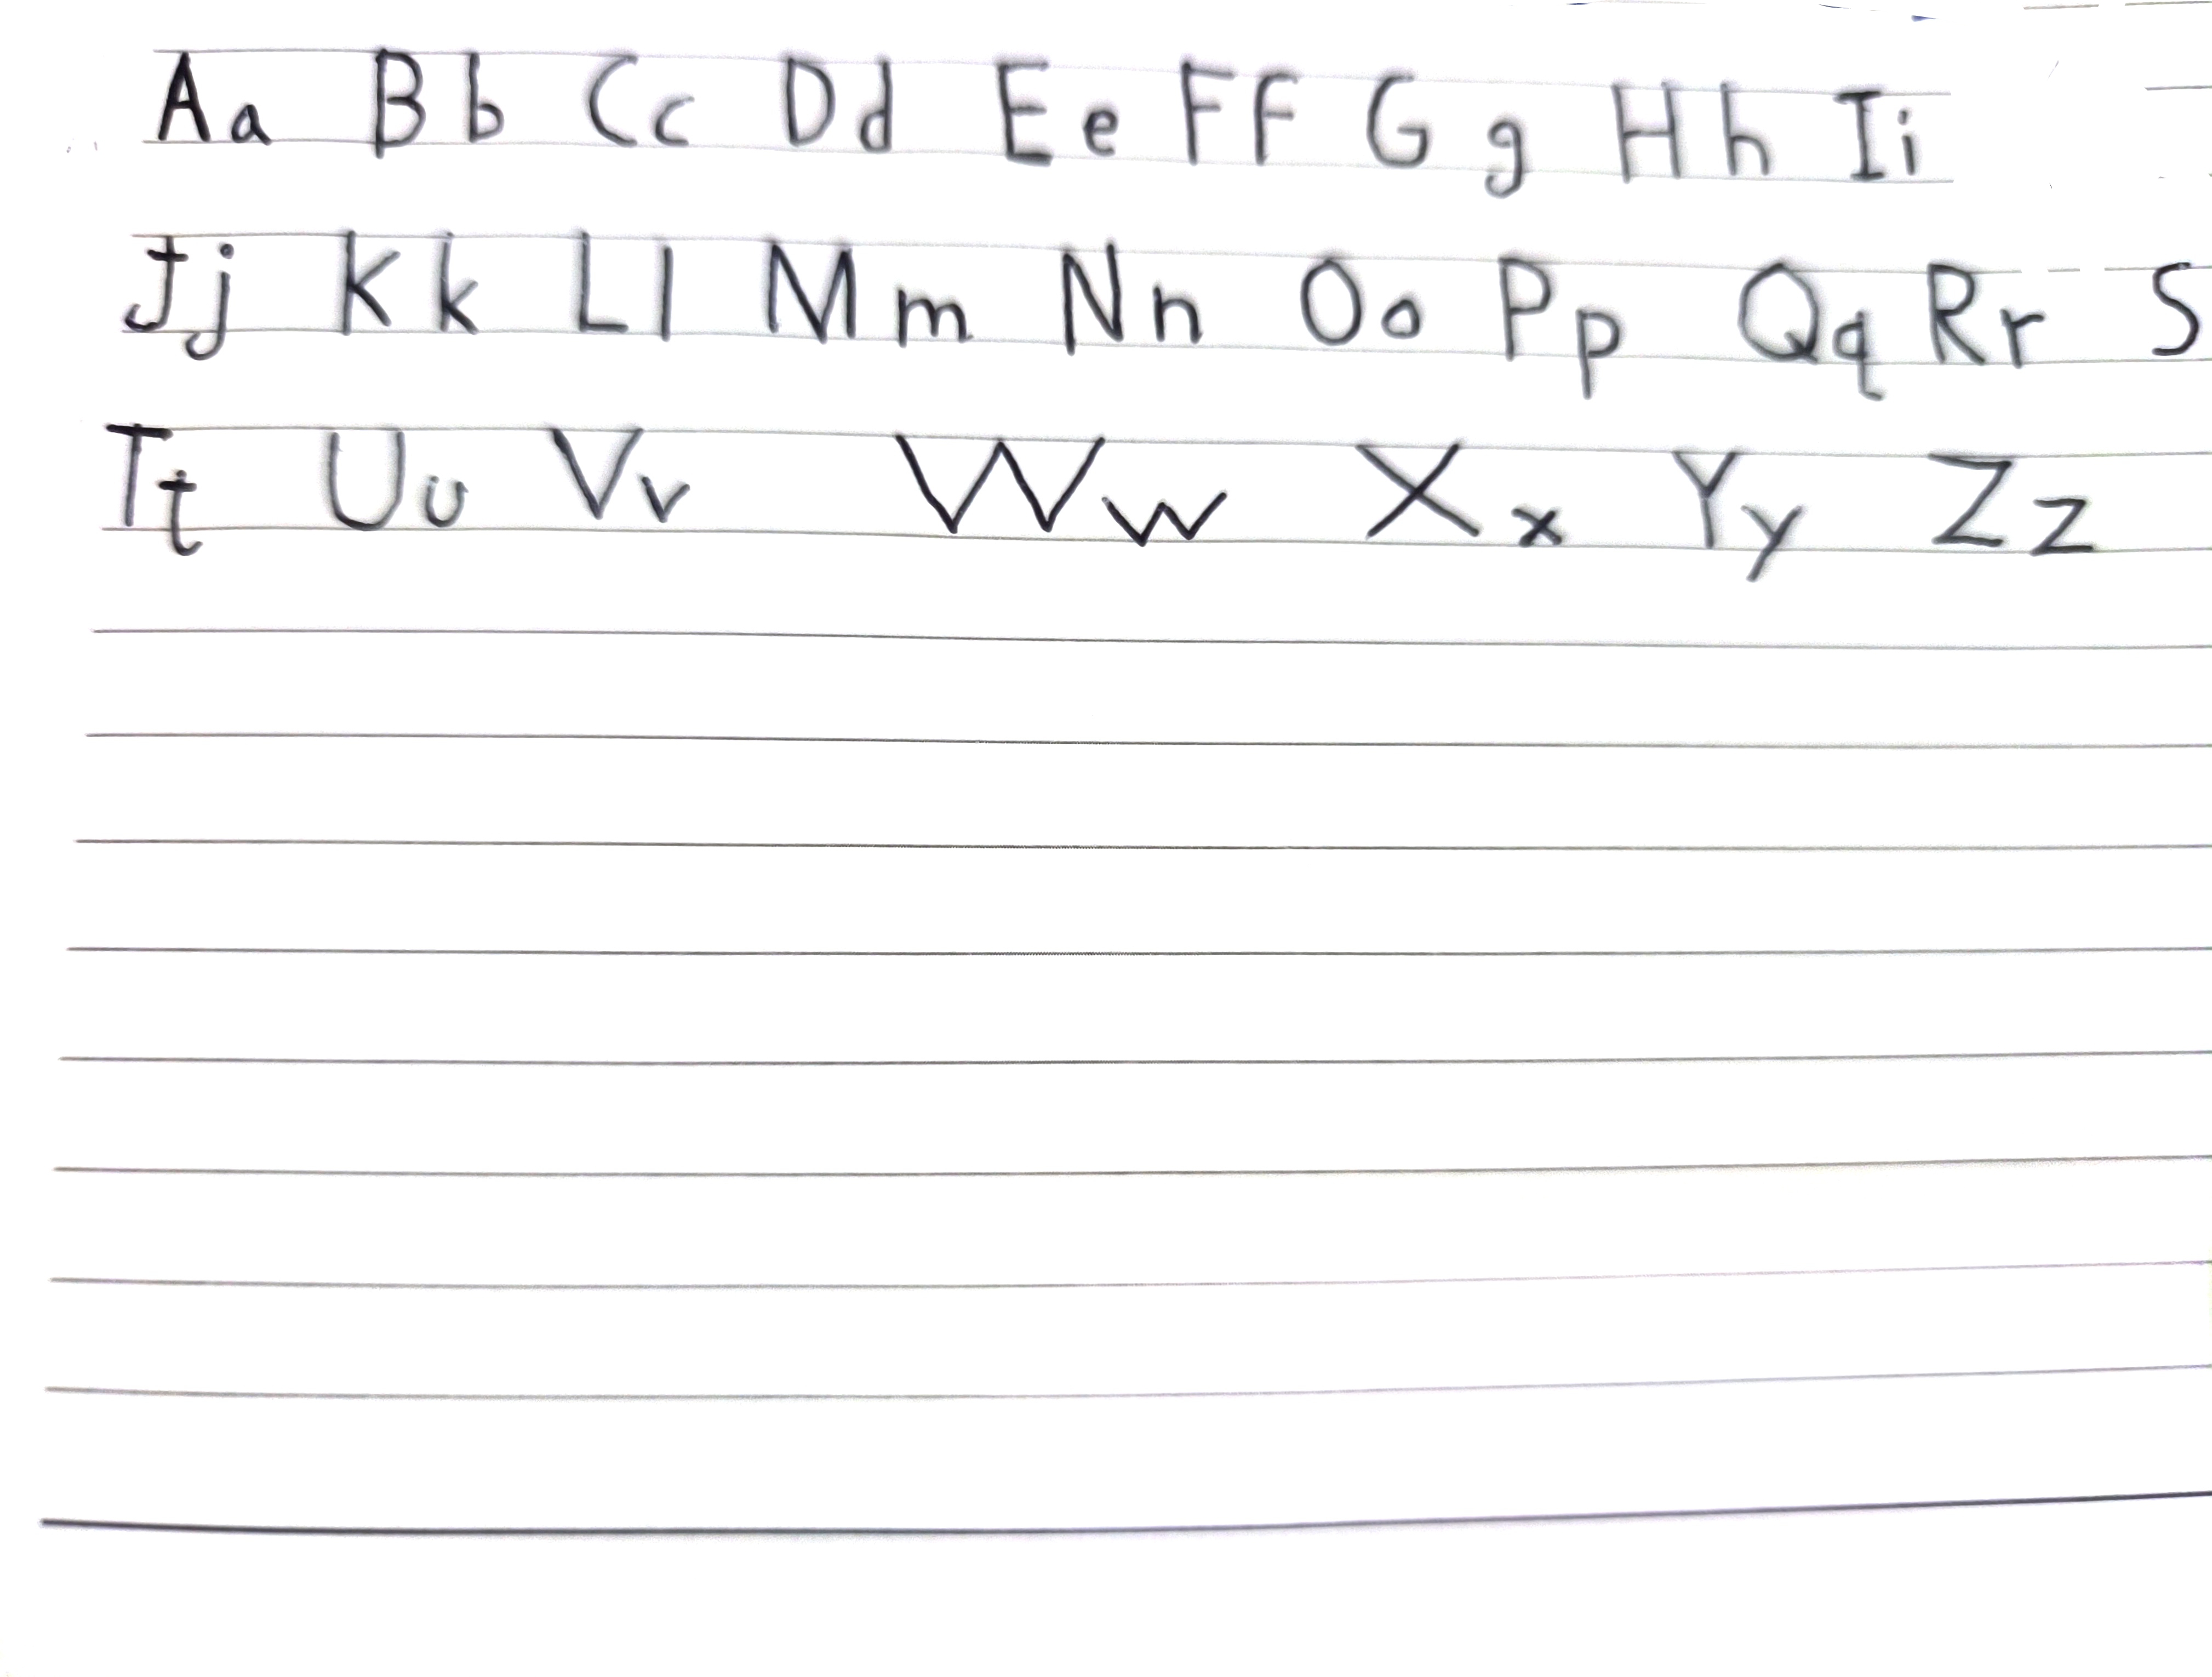 Aa Bb Cc Dd Ee Ff Gg Hh Ii
Jj Kk Ll Mm Nn Oo Pp Qq Rr S
Tt Uu Vv Ww Xx Yy Zz